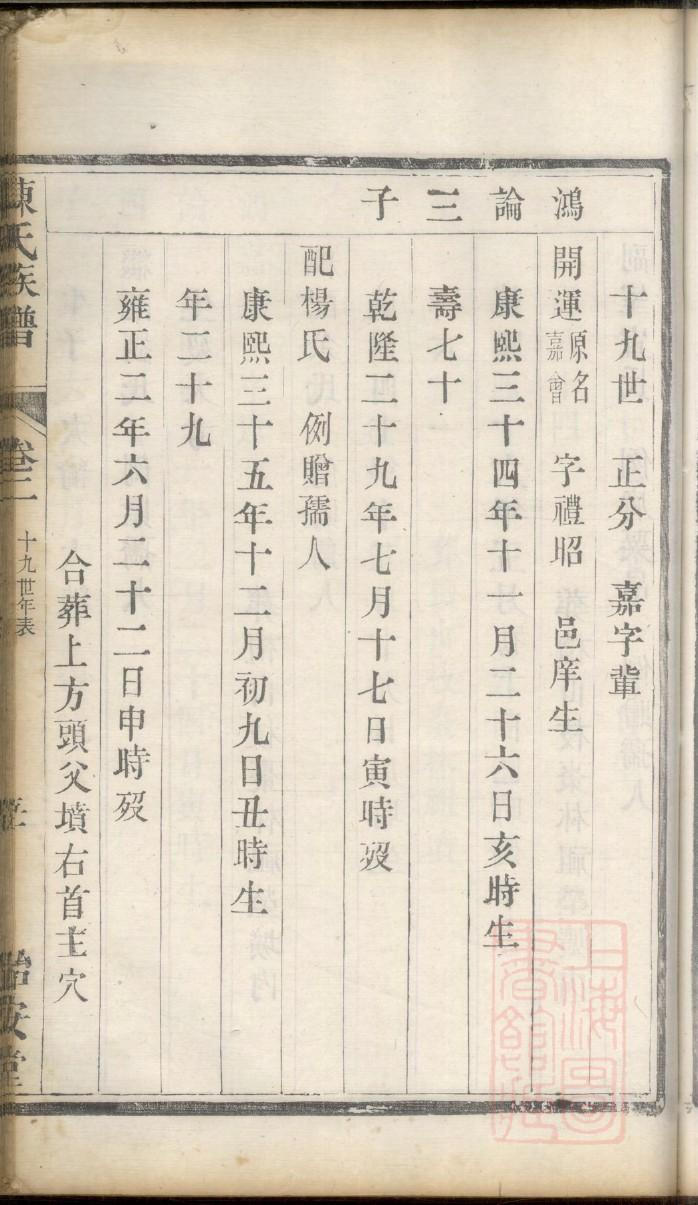 十九世　正分　嘉字輩
鴻
開運原名嘉會　字禮昭　邑庠生
論
康熙三十四年十一月二十六日亥時生
三
壽七十
子
乾隆二十九年七月十七日寅時歿
配楊氏　例贈孺人
康熙三十五年十二月初九日丑時生
年二十九
雍正二年六月二十二日申時歿
合葬上方頭父墳右首主穴
陳氏族譜
卷二
十九世年表
怡安堂
上海圖書館藏